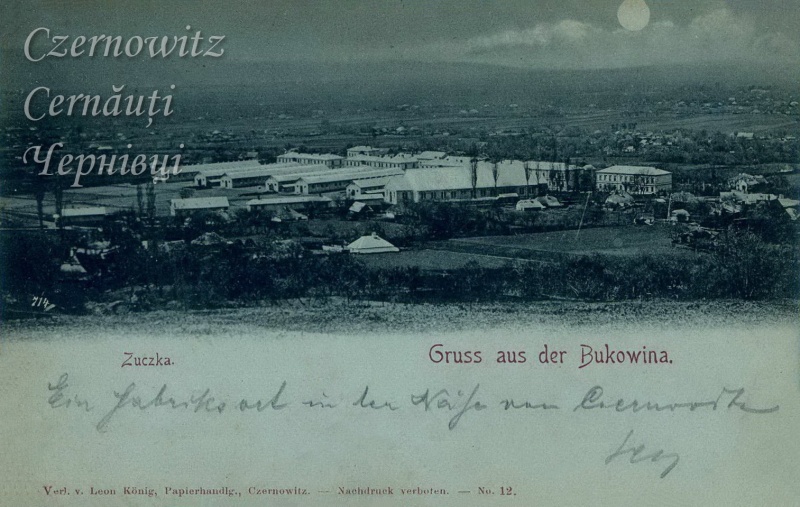 Czernowitz
Cernăuți
Чернівці
714
Zuczka.
Gruss aus der Bukowina.
Ein Fabriksort in der Nähe von Czernowitz
Verl. v. Leon König, Papierhandlg., Czernowitz. — Nachdruck verboten. — No. 12.